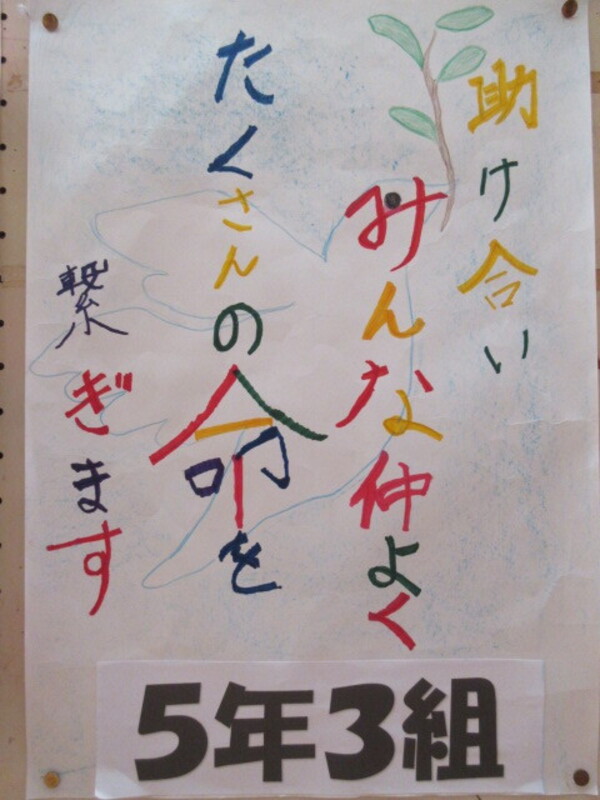 助け合い
みんな仲よく
たくさんの命を
繋ぎます
5年3組